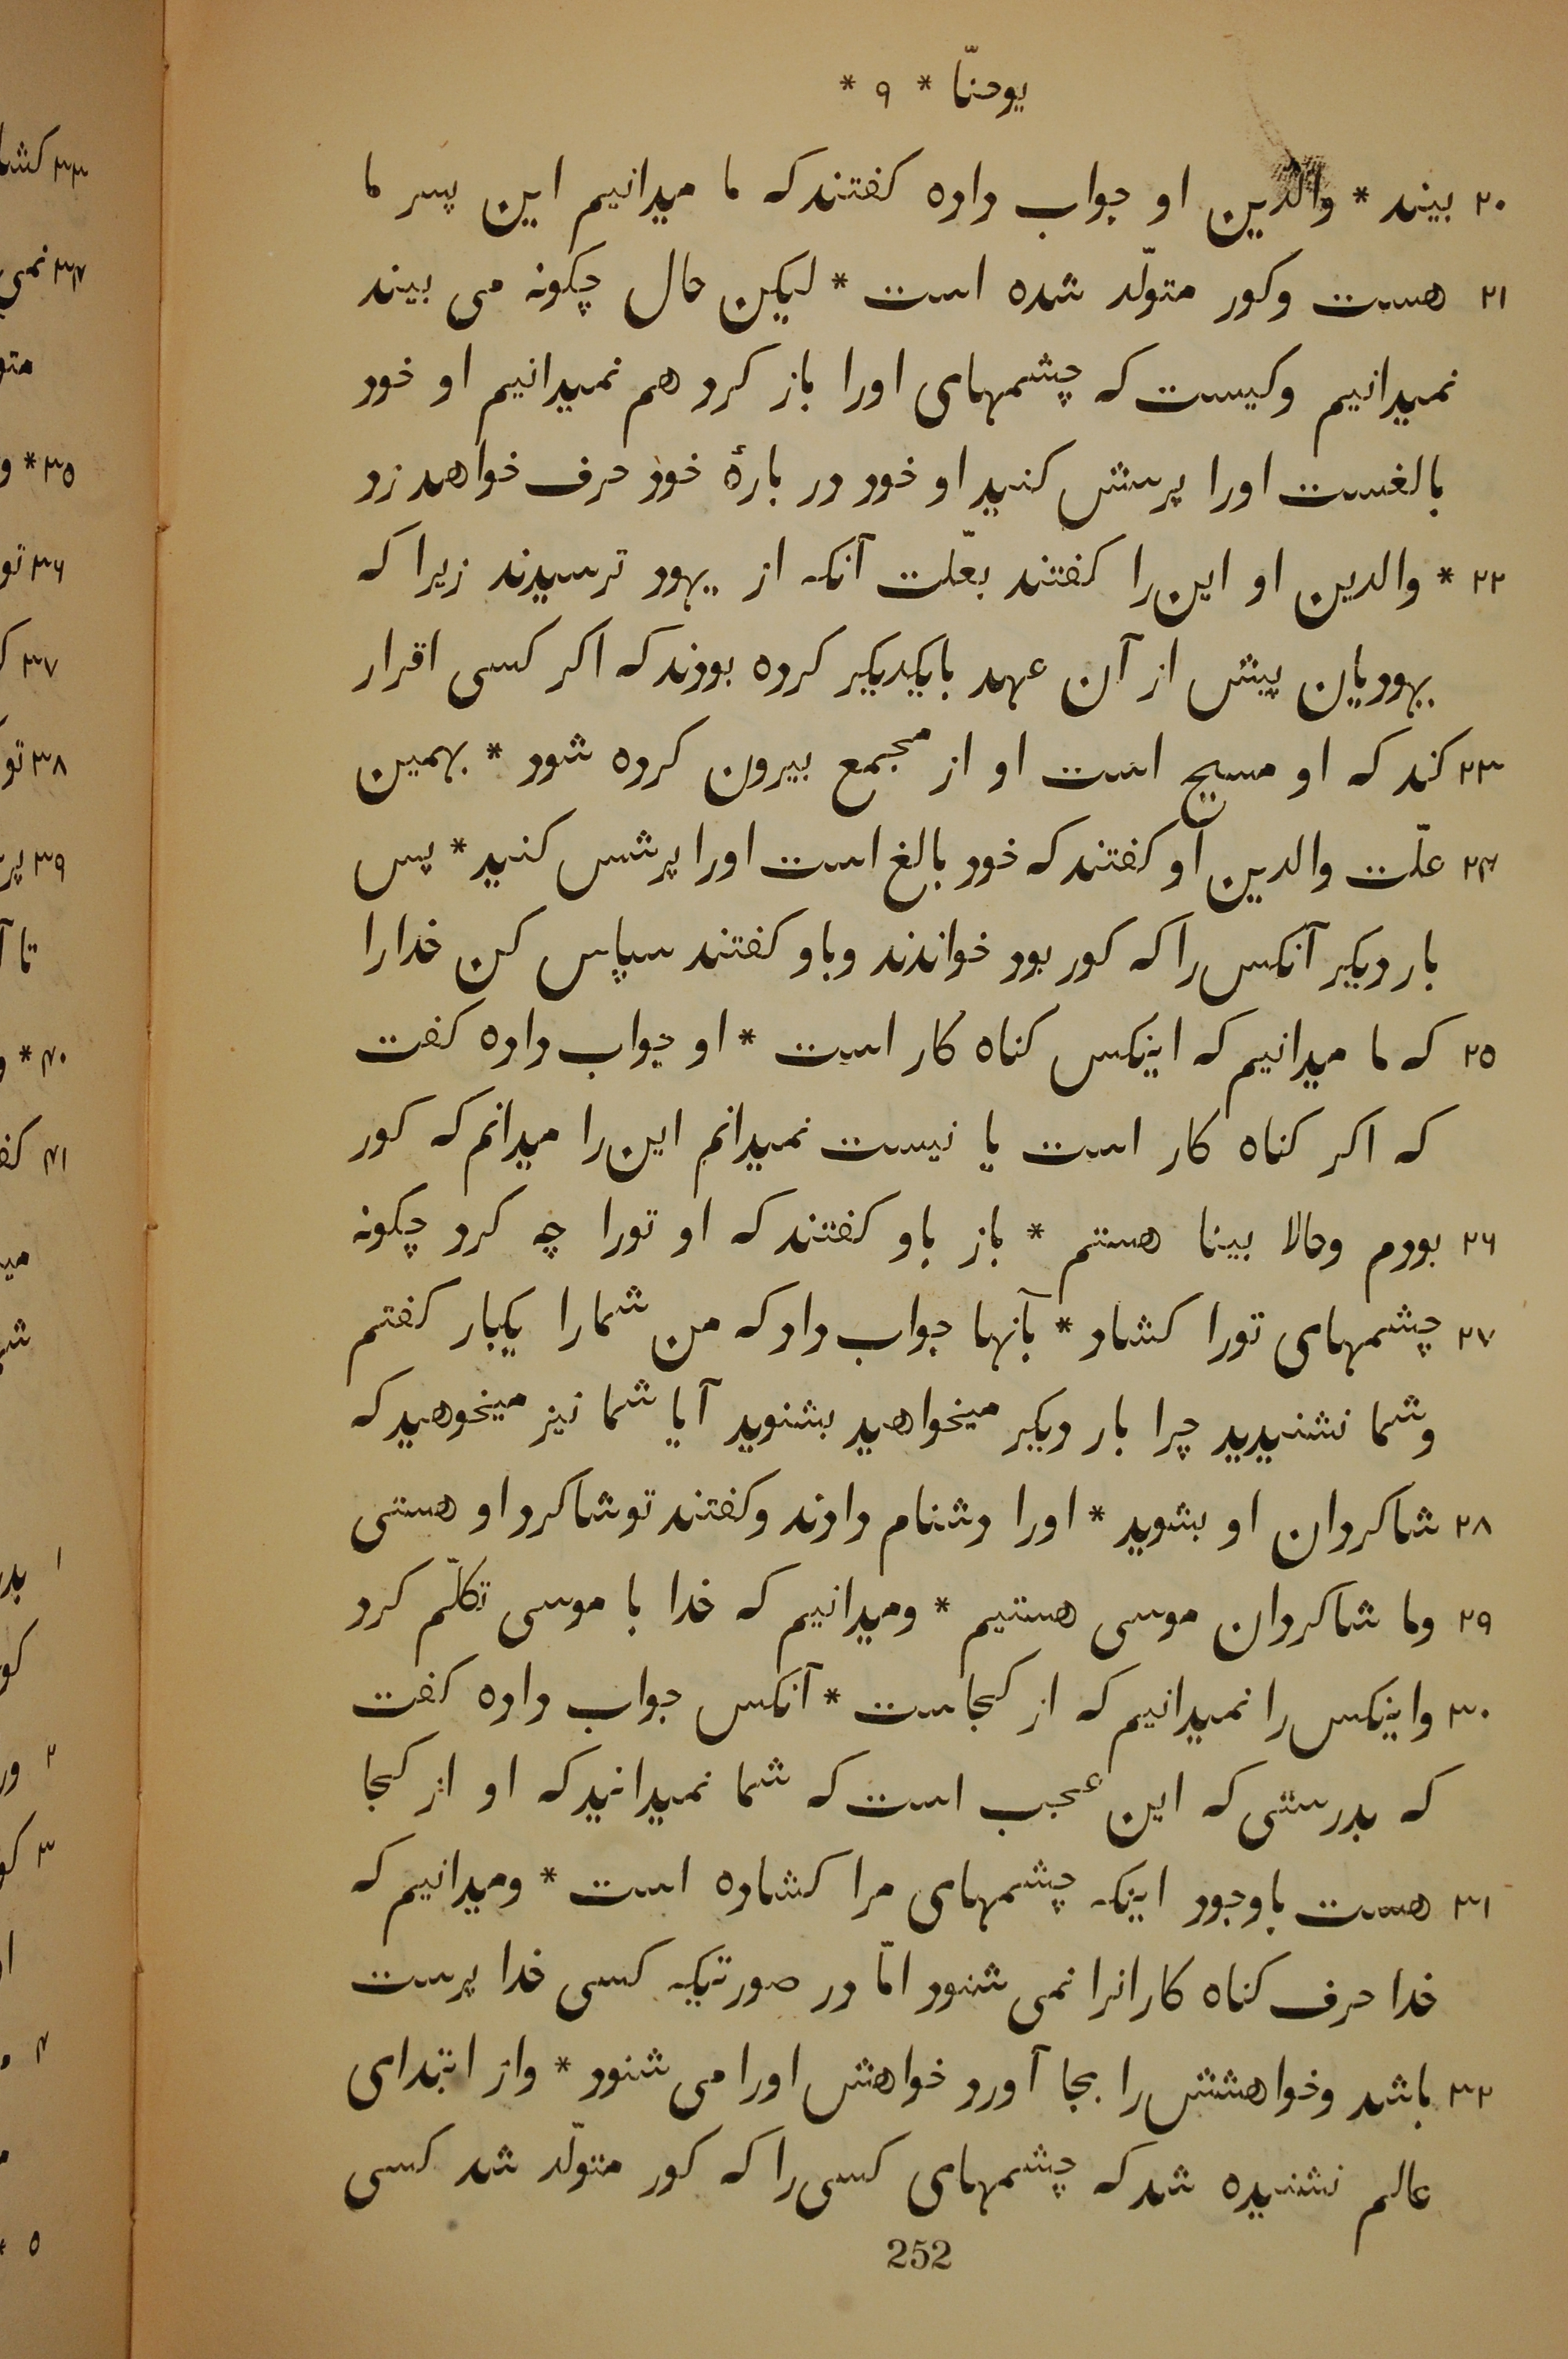 یوحنّا * ۹ *
۲۰ بیند * والدین او جواب داده کفتند که ما میدانیم این پسر ما
۲۱ هست وکور متولّد شده است * لیکن حال چکونه می بیند
نمیدانیم وکیست که چشمهای اورا باز کرد هم نمیدانیم او خود
بالغست اورا پرسش کنید او خود در بارهٔ خود حرف خواهد زد
۲۲ * والدین او این را کفتند بعلّت آنکه از یهود ترسیدند زیرا که
یهودیان پیش از آن عهد بایکدیکر کرده بودند که اکر کسی اقرار
۲۳ کند که او مسیح است او از مجمع بیرون کرده شود * بهمین
۲۴ علّت والدین او کفتند که خود بالغ است اورا پرسش کنید * پس
بار دیکر آنکس را که کور بود خواندند وباو کفتند سپاس کن خدارا
۲۵ که ما میدانیم که اینکس کناه کار است * او جواب داده کفت
که اکر کناه کار است یا نیست نمیدانم این را میدانم که کور
۲۶ بودم وحالا بینا هستم * باز باو کفتند که او تورا چه کرد چکونه
۲۷ چشمهای تورا کشاد * بآنها جواب داد که من شمارا یکبار کفتم
وشما نشنیدید چرا بار دیکر میخواهید بشنوید آیا شما نیز میخوهید که
۲۸ شاکردان او بشوید * اورا دشنام دادند وکفتند تو شاکرد او هستی
۲۹ وما شاکردان موسی هستیم * ومیدانیم که خدا با موسی تکلّم کرد
۳۰ واینکس را نمیدانیم که از کجاست * آنکس جواب داده کفت
که بدرستی که این عجب است که شما نمیدانید که او از کجا
۳۱ هست باوجود اینکه چشمهای مرا کشاده است * ومیدانیم که
خدا حرف کناه کارانرا نمی شنود امّا در صورتیکه کسی خدا پرست
۳۲ باشد وخواهشش را بجا آورد خواهش اورا می شنود * واز ابتدای
عالم نشنیده شد که چشمهای کسی را که کور متولّد شد کسی
252